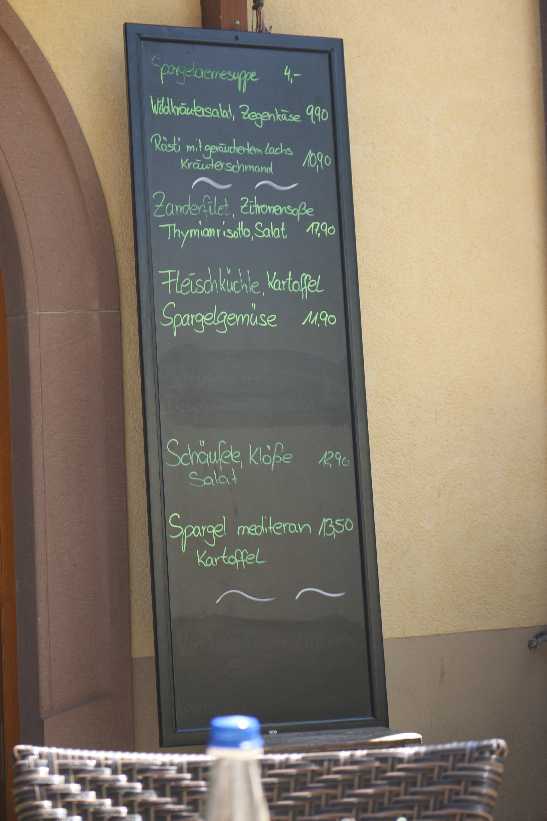 Spargelcremesuppe 4,-
Wildkräutersalat, Ziegenkäse 9,90
Rösti mit geräuchertem Lachs
Kräuterschmand 10,90
Zanderfilet, Zitronensoße
Thymianrisotto, Salat 17,90
Fleischküchle, Kartoffel
Spargelgemüse 11,90
Schäufele, Klöße 12,90
Salat
Spargel mediteran 13,50
Kartoffel